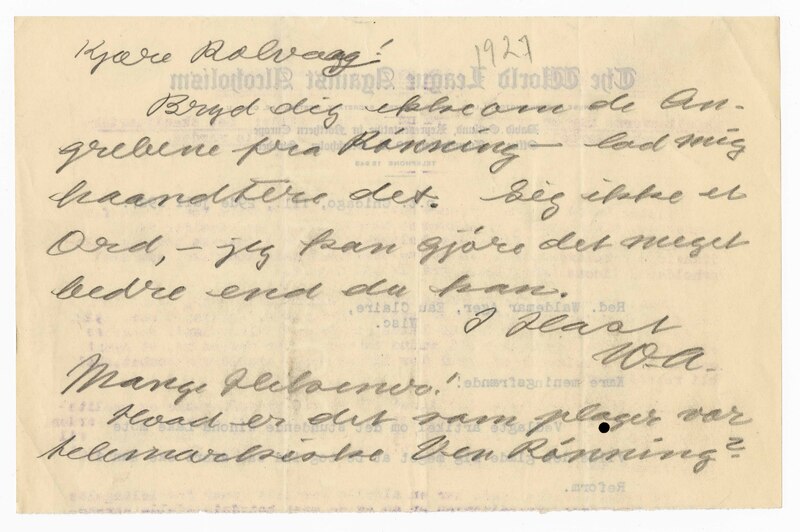 1927
Kjære Rolvaag!
Bryd dig ikke om de An-
grebene fra Rønning — lad mig
haandtere det. Sig ikke et
Ord, — jeg kan gjøre det meget
bedre end du kan.
I Hast
W.A.
Mange Hilsener!
Hvad er det som plager vor
telemarkiske Ven Rønning?
The World League Against Alcoholism
TELEPHONE
Chicago, Ill.,
Red. Waldemar Ager, Eau Claire,
Wisc.
Kære meningsfrænde!
Vedlagte artikel om det studerende
Reform.